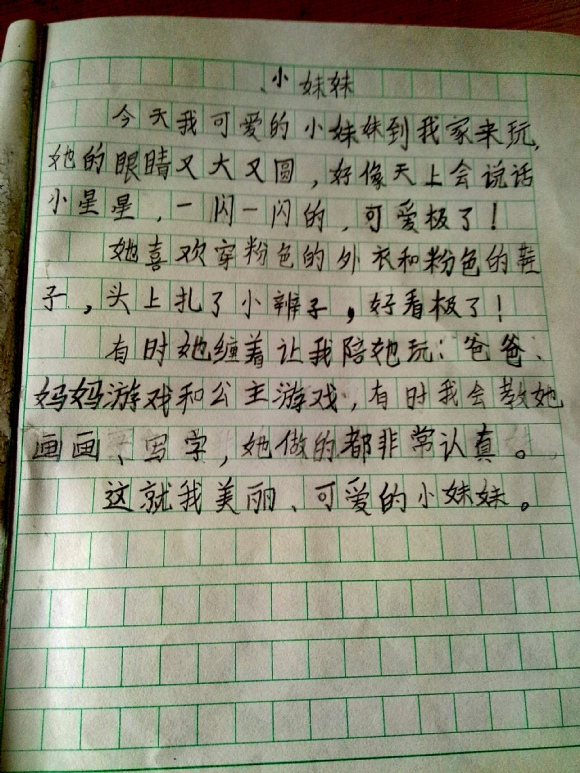 小妹妹
今天我可爱的小妹妹到我家来玩,
她的眼睛又大又圆,好像天上会说话
小星星,一闪一闪的,可爱极了!
她喜欢穿粉色的外衣和粉色的鞋
子,头上扎了小辫子,好看极了!
有时她缠着让我陪她玩:爸爸、
妈妈游戏和公主游戏,有时我会教她
画画、写字,她做的都非常认真。
这就我美丽、可爱的小妹妹。